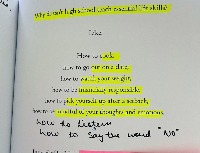 Why doesn't high school teach essential life skills?
Like:
How to cook,
how to go out on a date,
how to watch your weight,
how to be financially responsible,
how to pick yourself up after a setback,
how to be mindful to your thoughts and emotions,
how to listen
how to say the word "NO"